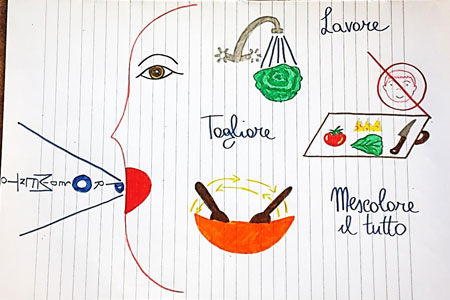 Lavare
Tagliare
Mescolare
il tutto